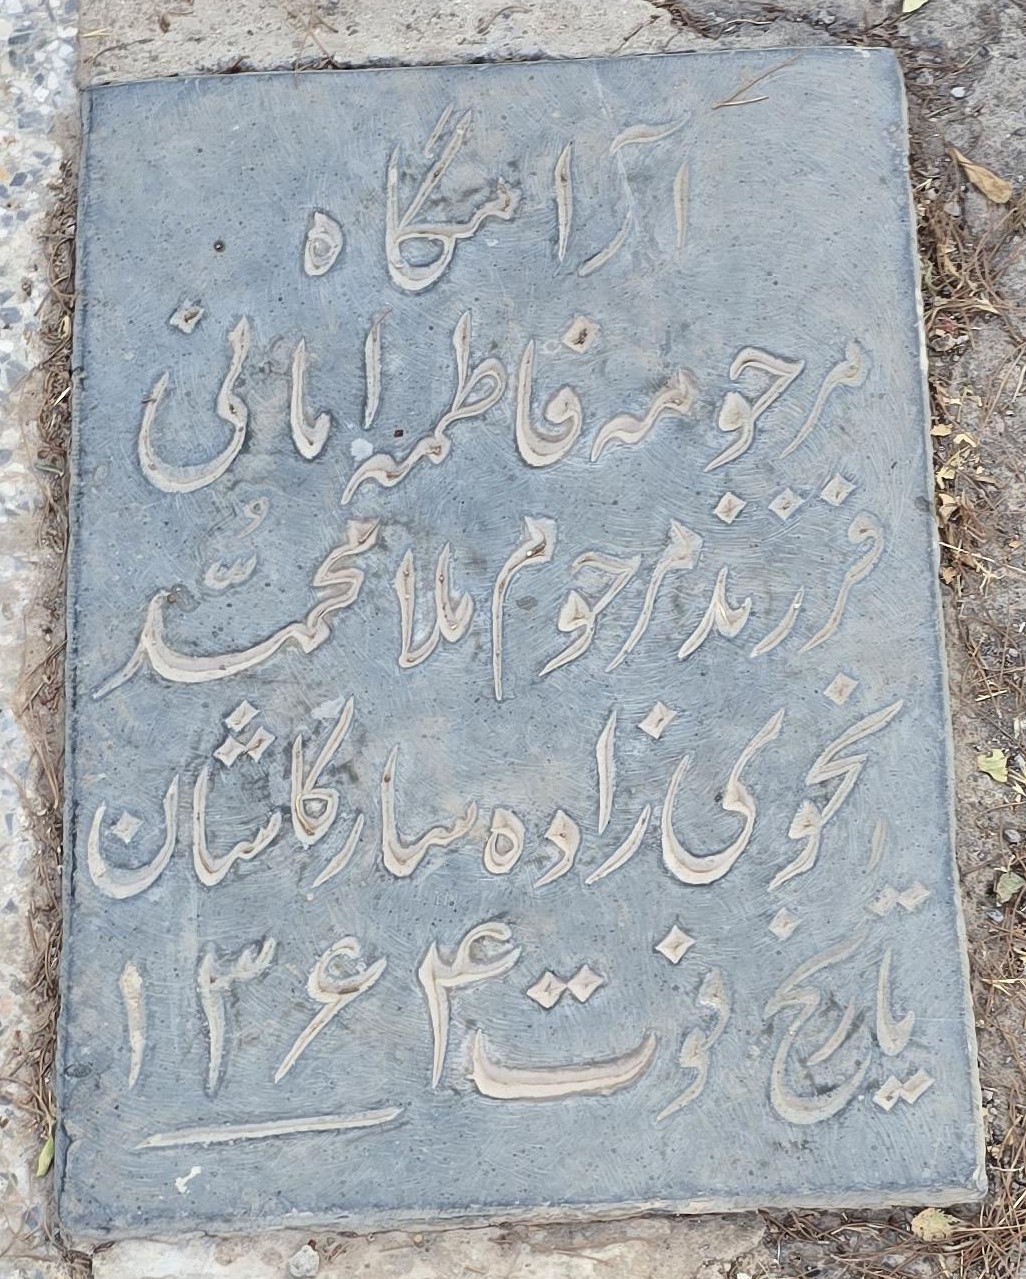 آرامگاه
مرحومه فاطمه امانی
فرزند مرحوم ملا محمّد
نحوی زاده سار کاشان
تاریخ فوت ۱۳۶۴